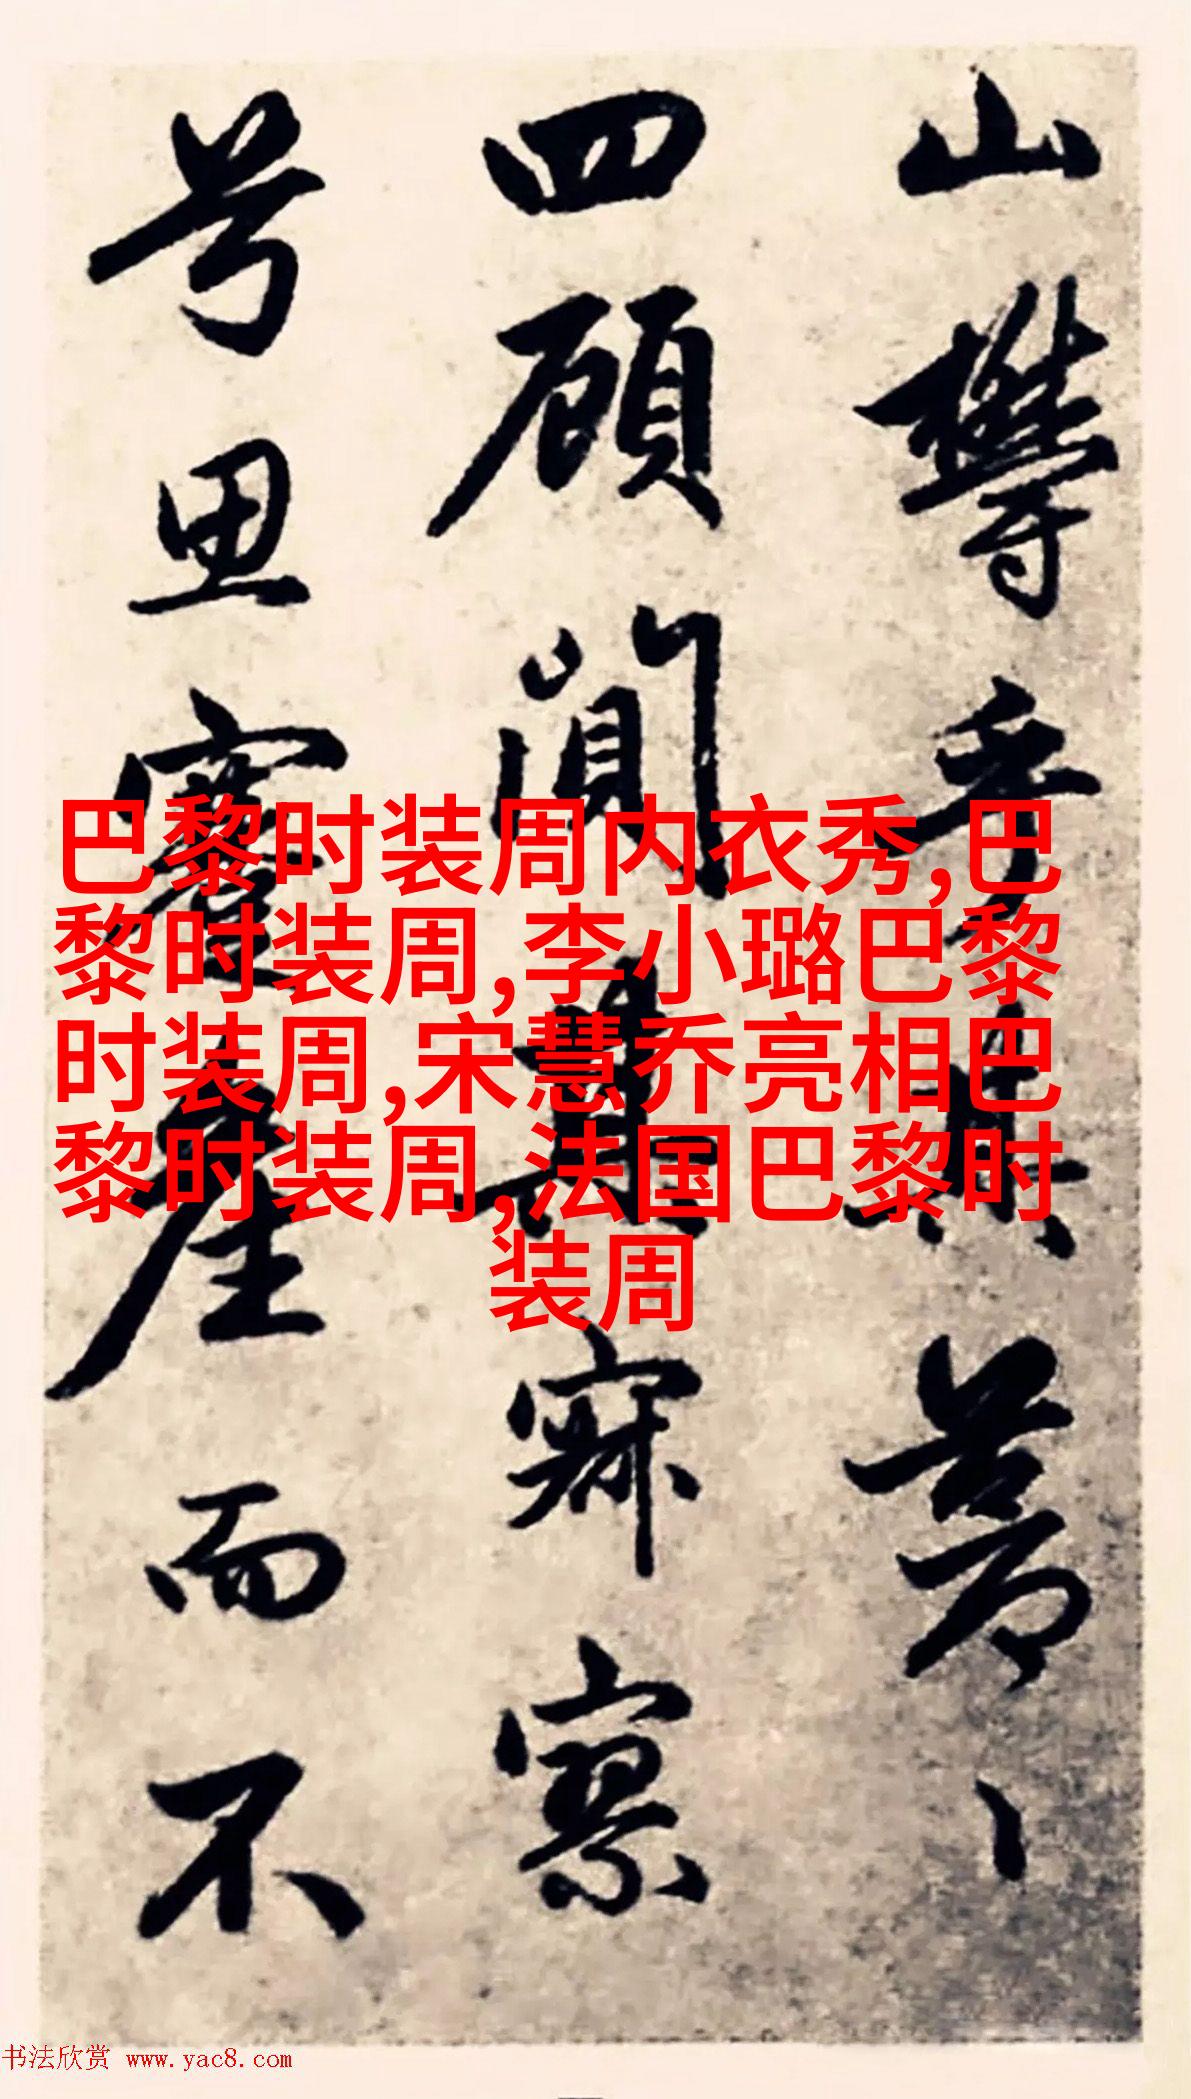 山欝乎其蒼〻
四顧闃其寂寥
兮思蹇產而不
巴黎时装周内衣秀,巴
黎时装周,李小璐巴黎
时装周,宋慧乔亮相巴
黎时装周,法国巴黎时
装周
书法欣赏 www.yac8.com